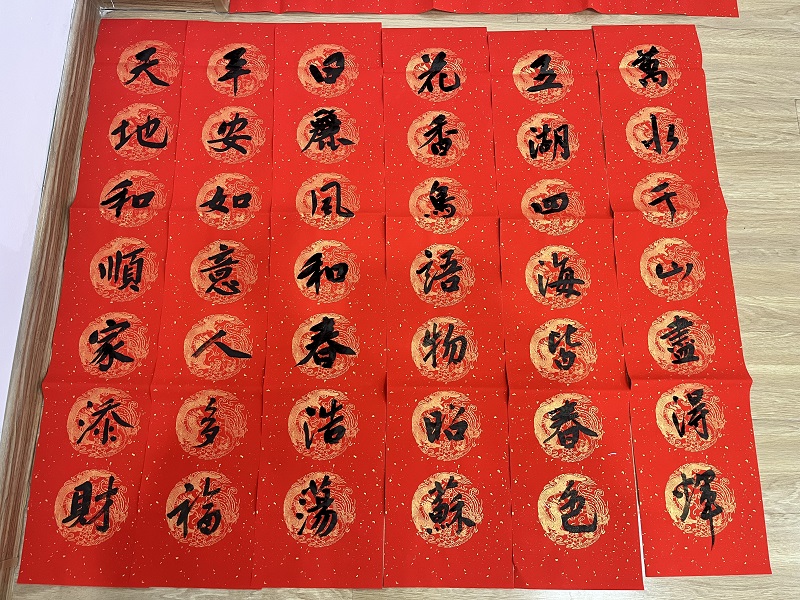 天地和順家添財
平安如意人多福
日麗風和春浩蕩
花香鳥語物昭蘇
五湖四海皆春色
萬水千山盡得輝